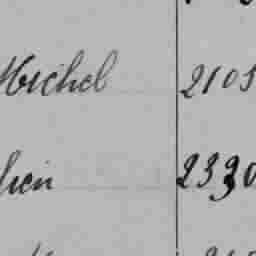 Michel 2105
hien 2330